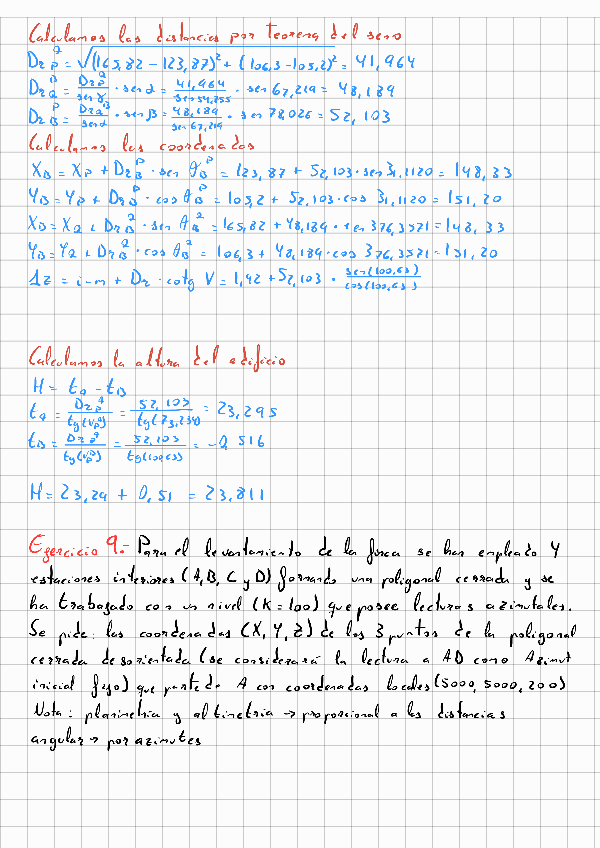 Calculamos las distancias por teorema del seno
Dr_P^Q = √((165,82 - 123,87)² + (106,3 - 105,2)²) = 41,964
Dr_Q^B = Dr_P^Q / sen γ · sen α = 41,964 / sen 54,755 · sen 67,219 = 48,189
Dr_B^P = Dr_Q^B / sen α · sen β = 48,189 / sen 67,219 · sen 78,026 = 52,103
Calculamos las coordenadas
X_B = X_P + Dr_B^P · sen θ_B^P = 123,87 + 52,103 · sen 31,1120 = 148,33
Y_B = Y_P + Dr_B^P · cos θ_B^P = 105,2 + 52,103 · cos 31,1120 = 151,20
X_B = X_Q + Dr_B^Q · sen θ_B^Q = 165,82 + 48,189 · sen 376,3521 = 148,33
Y_B = Y_Q + Dr_B^Q · cos θ_B^Q = 106,3 + 48,189 · cos 376,3521 = 151,20
Δz = i - m + Dr · cotg V = 1,42 + 52,103 · sen(100,63) / cos(100,63)
Calculamos la altura del edificio
H = t_a - t_B
t_a = Dr_P^a / tg(V_P^a) = 52,103 / tg(73,234) = 23,295
t_B = Dr_P^a / tg(V_P^a) = 52,103 / tg(100,63) = -0,516
H = 23,29 + 0,51 = 23,811
Ejercicio 9.- Para el levantamiento de la finca se han empleado 4
estaciones interiores (A, B, C y D) formando una poligonal cerrada y se
ha trabajado con un nivel (K = 100) que posee lecturas azimutales.
Se pide: las coordenadas (X, Y, Z) de los 3 puntos de la poligonal
cerrada desorientada (se considerará la lectura a AD como Azimut
inicial fijo) que parte de A con coordenadas locales (5000, 5000, 200)
Nota: planimetria y altimetria → proporcional a las distancias
angular → por azimutes